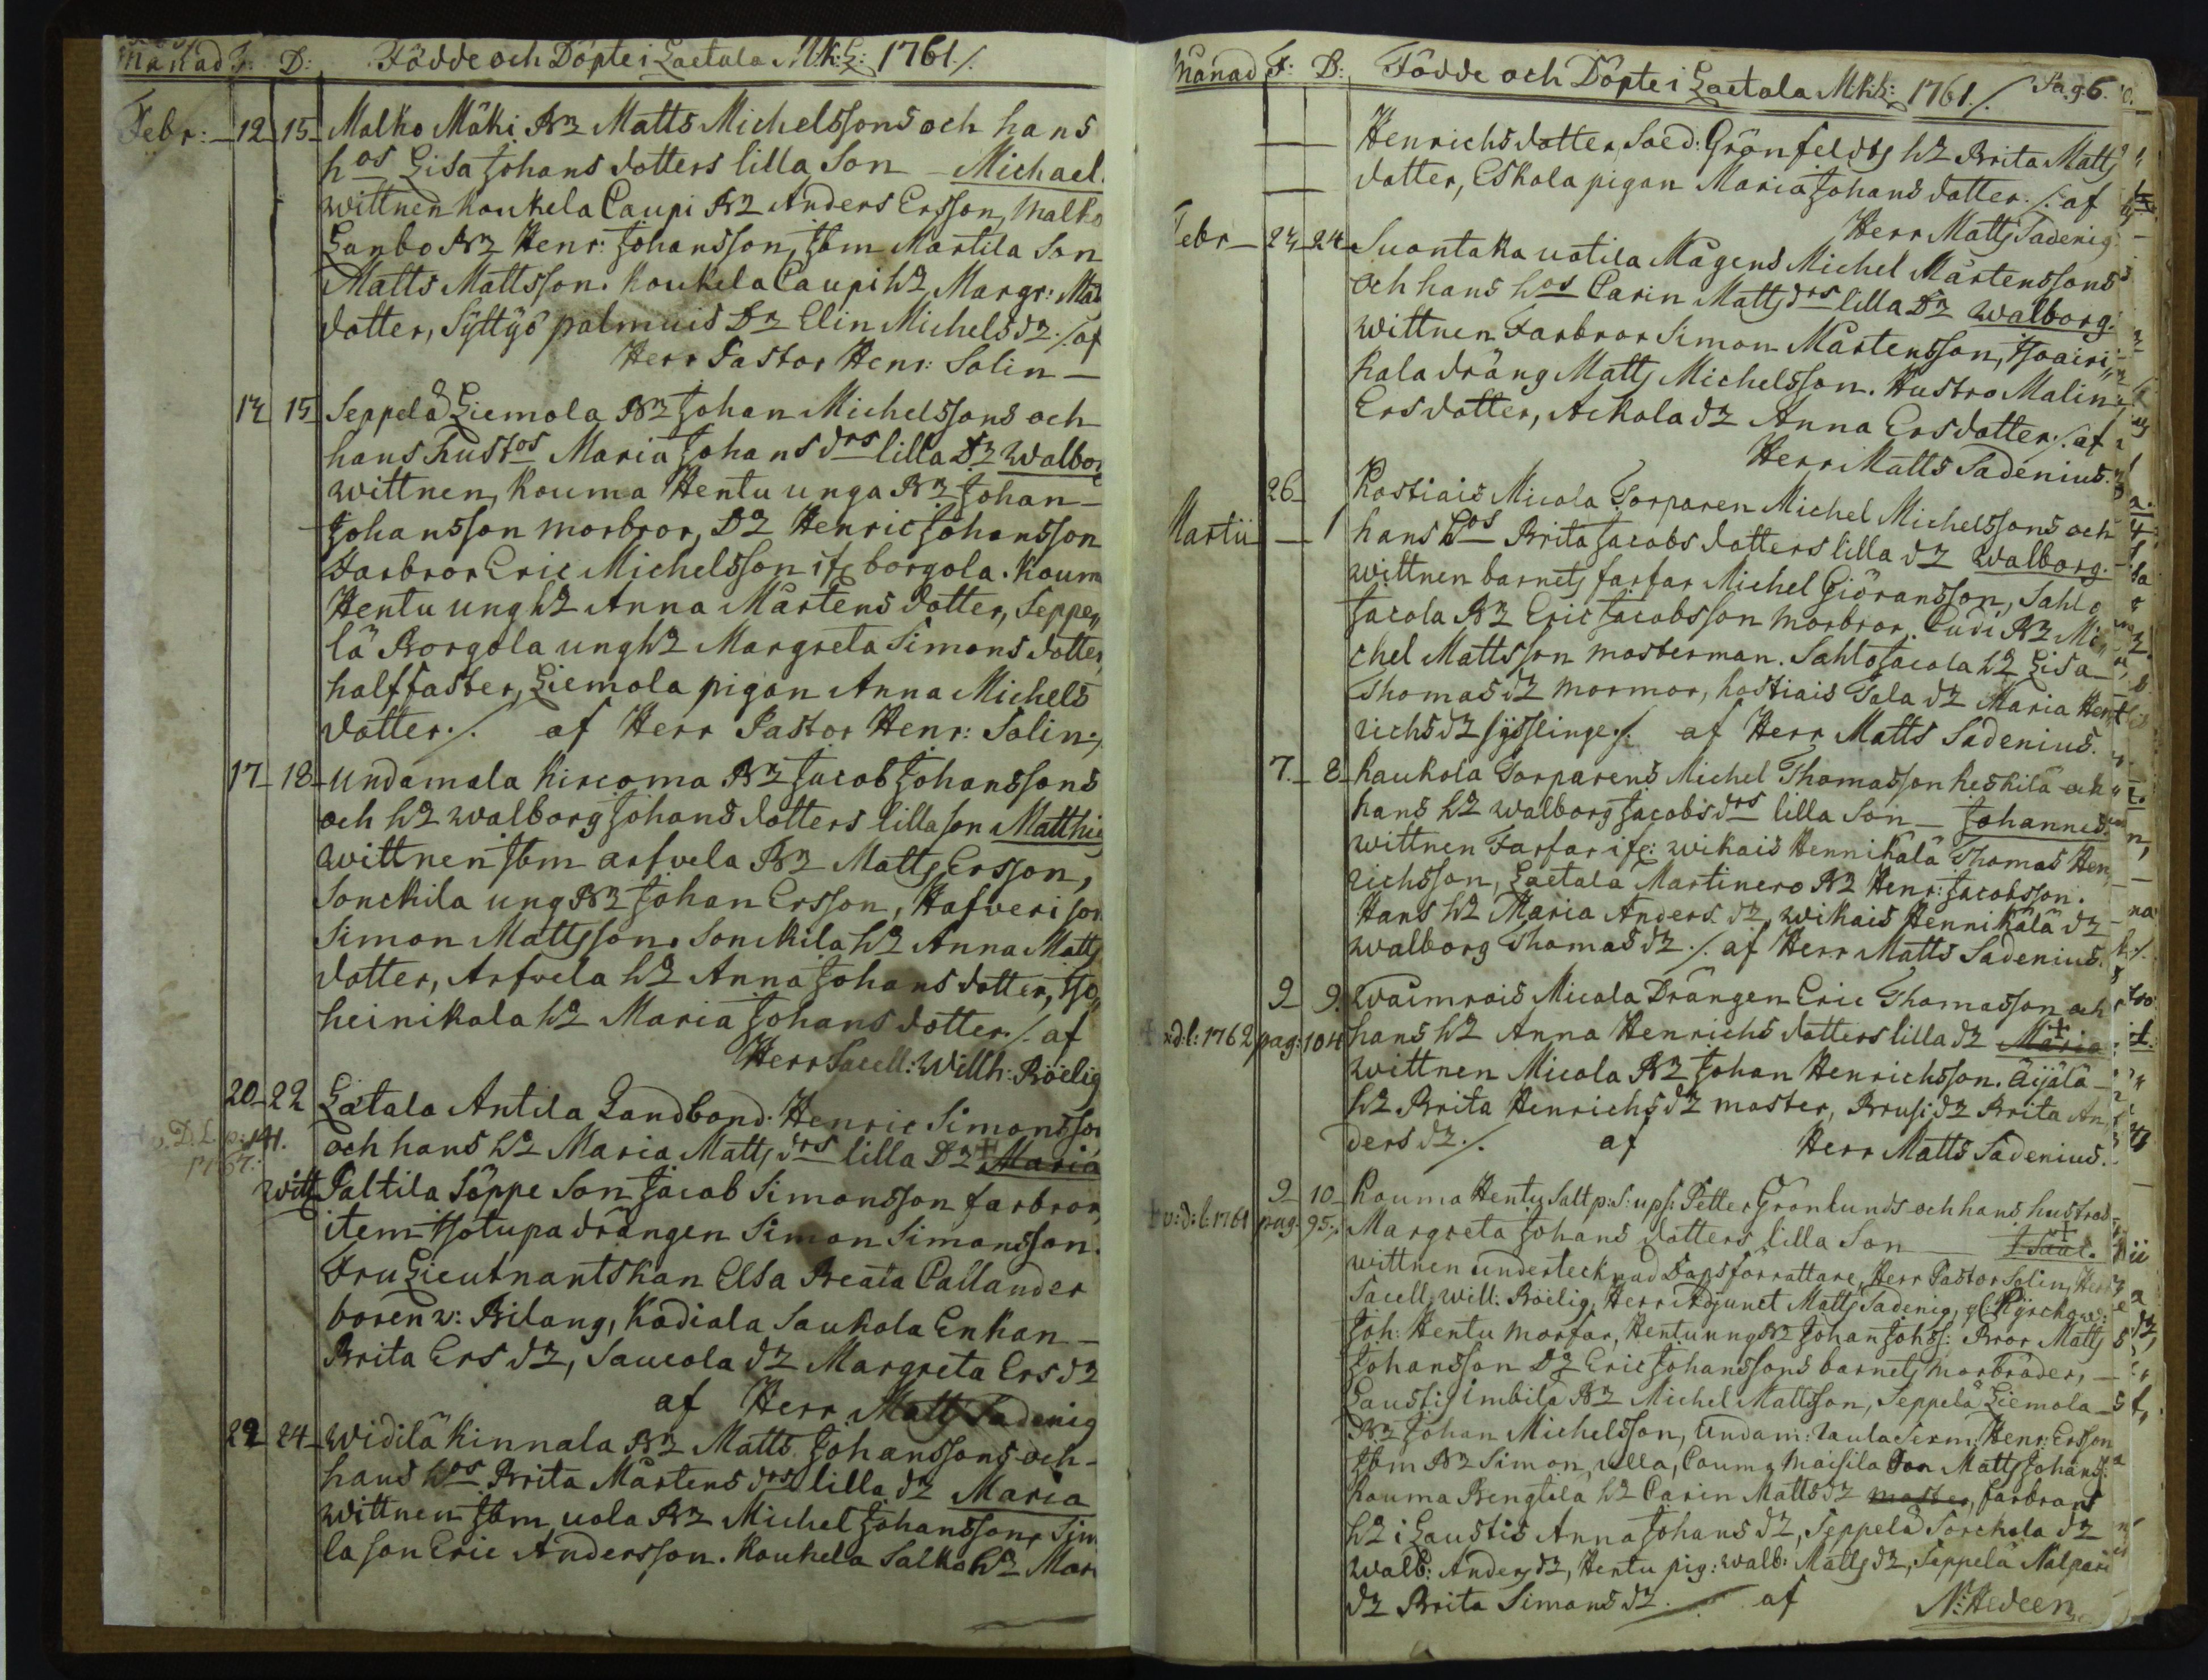 Månad F: D: Födde och Döpte i Laetala M:k:L: 1761 ./.
Febr: 12 15 Malko Mäki Bz Matts Michelssons och hans
hos Lisa Johans dotters lilla Son Michael.
wittnen koukela Caupi Bz Anders Ersson, Malko
Lanbo Bz Henr: Johansson, Ibm Martila Son
Matts Mattsson. koukela Caupi hz Margr: Mat
dotter, Syttyö palmuis Dr Elin Michelsdz ./. af
Herr Pastor Henr: Solin
14 15 Seppelä Liemola Bz Johan Michelssons och
hans hustos Maria Johans drs lilla Dz Walbor
wittnen, kouma Hentu unga Bz Johan
Johansson morbror, Dz Henric Johansson
Farbror Eric Michelsson if: borgola. koum
Hentu ung hz Anna Mårtens dotter, Seppe„
lä Borgola ung hz Margreta Simons dotter
halffaster, Liemola pigan Anna Michels
dotter ./. af Herr Pastor Henr: Solin ./.
17 18 undamala kircoma Bz Jacob Johanssons
och hz walborg Johans dotters lilla son Matthi
wittnen Ibm arfvela Bz Matts Ersson,
Sonckila ung Bz Johan Ersson, Hafveri son
Simon Mattsson. Sonckila hz Anna Matts
dotter, Arfvela hz Anna Johans dotter, Iso„
heinikala hz Maria Johans dotter ./. af
Herr Sacell: Willh: Böelig
20 22 Lätala Antila Landbond: Henric Simonsson
v. D. L. p: 141. och hans hz Maria Matts drs lilla Dz Maria
1767.
Witt Paltila Söppe Son Jacob Simonsson farbror,
item Isotupa drängen Simon Simonsson.
Fru Lieutnantskan Elsa Beata Callander
boren v: Bilang, kodiala Saukola Enkan
Brita Ers dz, Saucola dz Margreta Ersdz
af Herr Matts Sadenig
22 24 widilä kinnala Bz Matts Johanssons och
hans hos Brita Mårtens drs lilla dz Maria
wittnen Ibm uola Bz Michel Johansson, Sim
la son Eric Andersson. koukela Salko hz Mar
Månad F: D: Födde och Döpte i Laetala M:k:L: 1761 ./. Pag: 6.
Henrichs dotter, Soed: Grönfeldts hz Brita Matts
dotter, Eskola pigan Maria Johans dotter ./. af
Herr Matts Sadenig
Febr 24 24 Suontaka uotila Mågens Michel Mårtenssons
och hans hos Carin Matts drs lilla Dr walborg.
wittnen Farbror Simon Mårtensson, Isoairi„
kala dräng Matts Michelsson. Hustro Malin
Ersdotter, Ackola dz Anna Ersdotter ./. af
Herr Matts Sadenius.
26 kostiais Micola Torparen Michel Michelssons och
Martii 1 hans hos Brita Jacobs dotters lilla dz walborg.
wittnen barnets farfar Michel Giöransson, Sahlo
Jacola Bz Eric Jacobsson morbror, Cudi Bz Mi„
chel Mattsson mosterman. Sahlo Jacola hz Lisa
Thomasdz mormor, kostiais Tala dz Maria Hen
richs dz sysslinge ./. af Herr Matts Sadenius.
7. 8 kaukola Torparens Michel Thomasson heskilä och
hans hz walborg Jacobs drs lilla Son Johannes.
wittnen Farfar if: wikais Hennikälä Thomas Hen
richsson, Laetala Martinero Bz Henr: Jacobsson.
Hans hz Maria Anders dz, wikais Hennikälä dz
walborg Thomas dz ./. af Herr Matts Sadenius.
9 9. Waimrois Micola Drängen Eric Thomasson och
v:d:l: 1762 pag: 104 hans hz Anna Henrichs dotters lilla dz Maria
wittnen Micola Bz Johan Henrichsson. äijälä
hz Brita Henrichs dz moster, Brusi dz Brita An„
ders dz ./. af Herr Matts Sadenius.
9 10 kouma Hentu Saltp: S: ups: Petter Grönlunds och hans hustros
v:d:l: 1761 pag. 95 ./. Margreta Johans dotters lilla Son Isaac.
wittnen undertecknad Dagsförrättare, Herr Pastor Solin, Herr
Sacell: Will: Böelig, Herr Adjunct Matts Sadenig, gl: kyrckow:
Joh: Hentu morfar, Hentu ung Bz Johan Johss: Bror Matts
Johansson Dz Eric Johanssons barnets morbröder,
Laustis imbila Bz Michel Mattsson, Seppelä Liemola
Bz Johan Michelsson, undam: Taula Serm: Henr: Ersson
Ibm Bz Simon ulla, Couma maisila Son Matts Johans:
kouma Bengtilä hz Carin Mattsdz moster, farbrors
hz i Laustis Anna Johans dz, Seppelä Sorckola dz
walb: Anders dz, Hentu pig: walb: Matts dz, Seppelä Nalpari
dz Brita Simons dz ./. af N: Hedeen